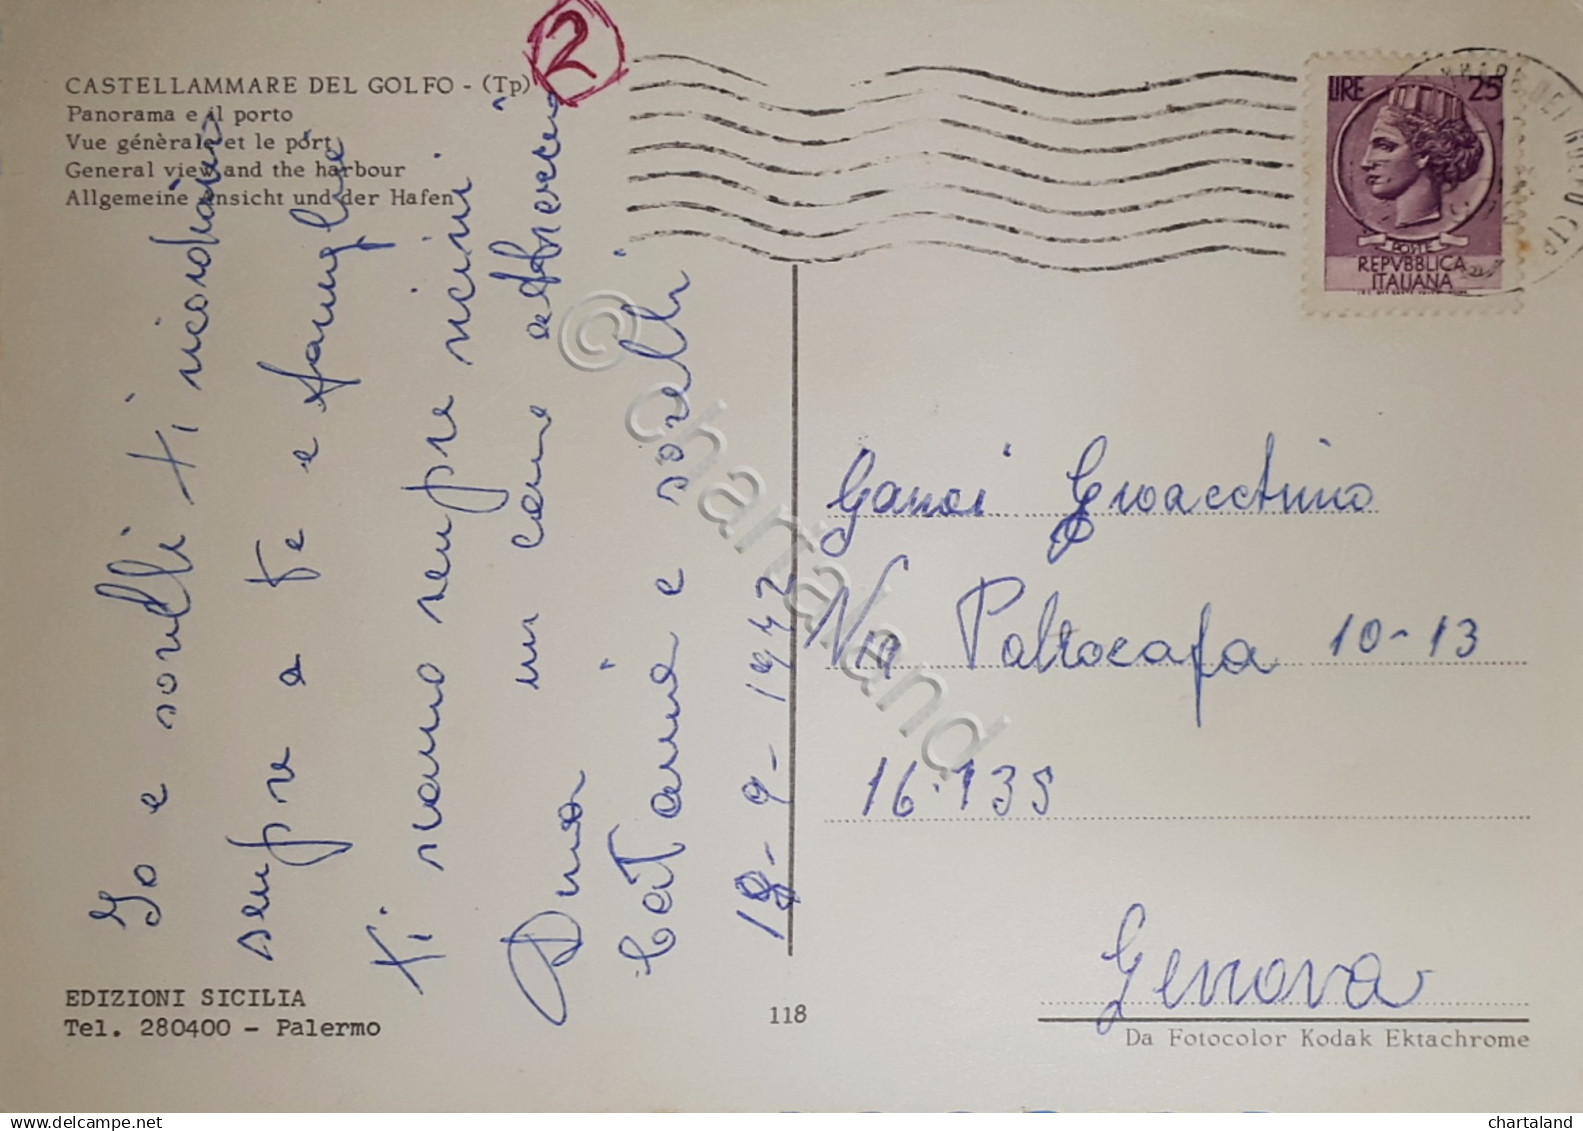 CASTELLAMMARE DEL GOLFO - (Tp)
Panorama e il porto
Vue générale et le port
General view and the harbour
Allgemeine Ansicht und der Hafen
2
LIRE 25
POSTE
REPVBBLICA
ITALIANA
Io e sorelli ti ricordiamo
sempre a te e famiglie
ti siamo sempre vicini
un caro abbraccio
Catania e sorelli
18-9-1972
Gioacchino
Via Paltocafa 10-13
16.135
Genova
EDIZIONI SICILIA
Tel. 280400 - Palermo
118
Da Fotocolor Kodak Ektachrome
© chartaland
www.delcampe.net
chartaland